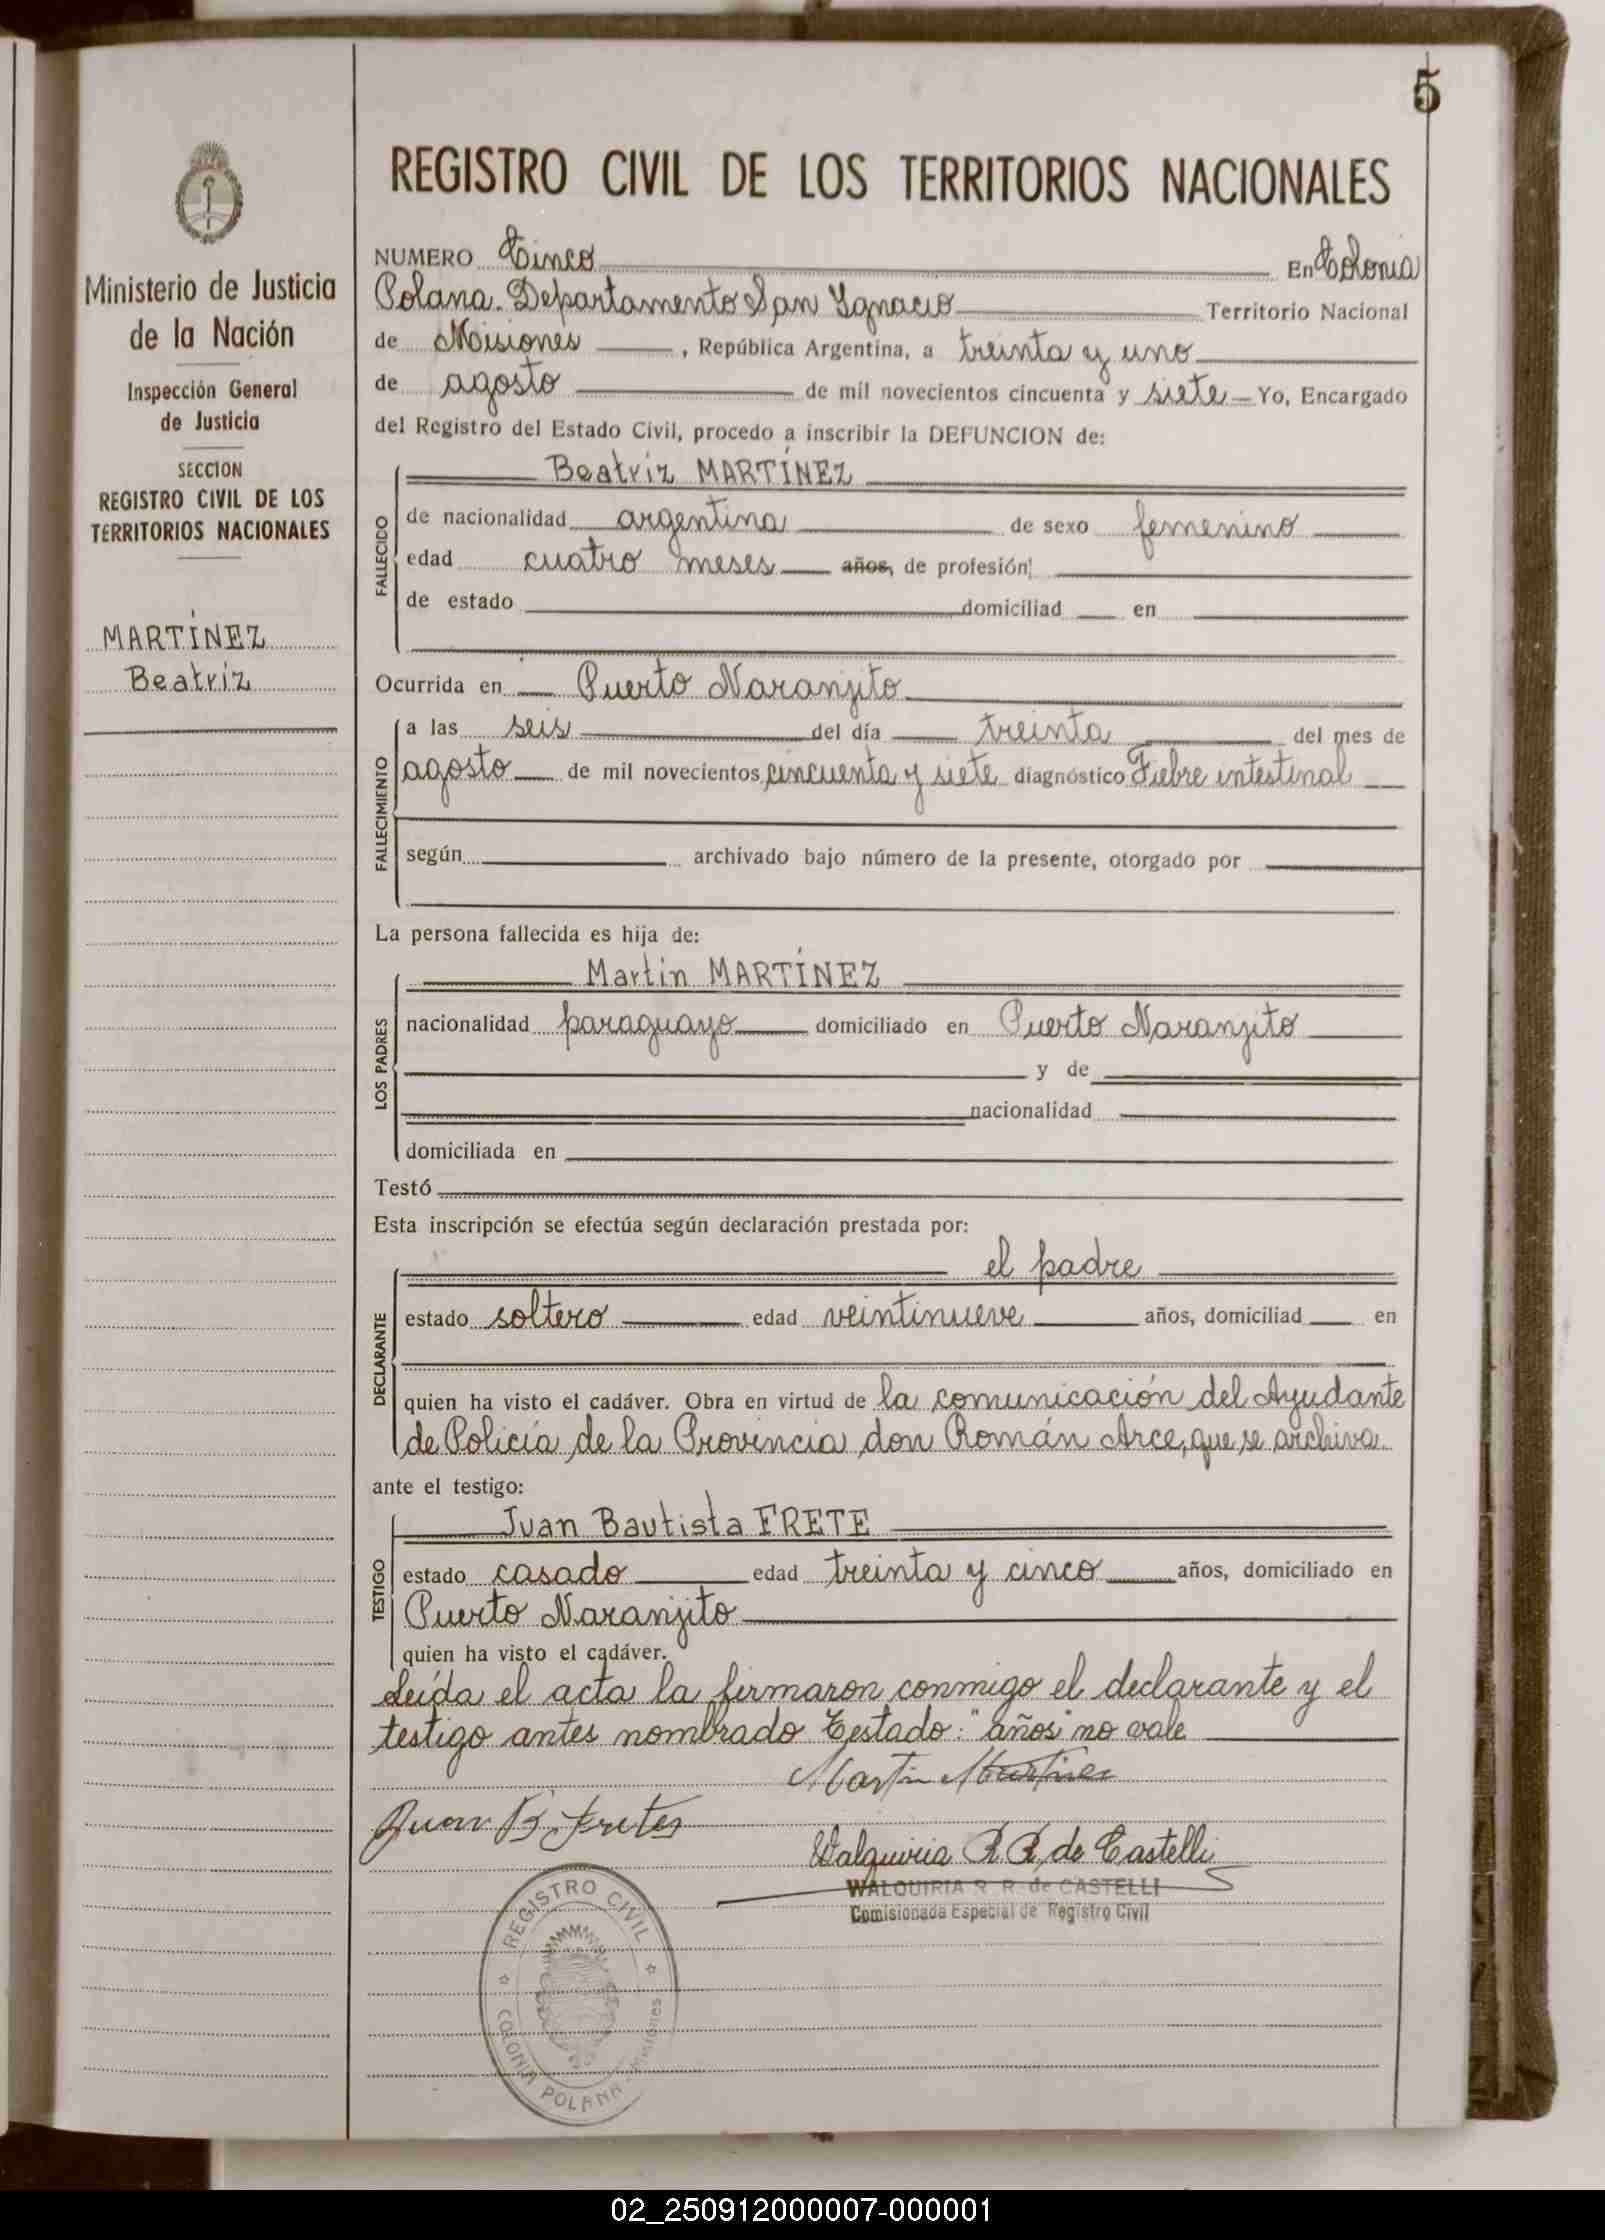 5
REGISTRO CIVIL DE LOS TERRITORIOS NACIONALES
Ministerio de Justicia
de la Nación
Inspección General
de Justicia
SECCION
REGISTRO CIVIL DE LOS
TERRITORIOS NACIONALES
MARTÍNEZ
Beatriz
NUMERO Cinco En Colonia
Polana. Departamento San Ignacio Territorio Nacional
de Misiones , República Argentina, a treinta y uno
de agosto de mil novecientos cincuenta y siete Yo, Encargado
del Registro del Estado Civil, procedo a inscribir la DEFUNCION de:
FALLECIDO
Beatriz MARTÍNEZ
de nacionalidad argentina de sexo femenino
edad cuatro meses años, de profesión
de estado domiciliad en
Ocurrida en Puerto Naranjito
FALLECIMIENTO
a las seis del día treinta del mes de
agosto de mil novecientos cincuenta y siete diagnóstico Fiebre intestinal
según archivado bajo número de la presente, otorgado por
La persona fallecida es hija de:
LOS PADRES
Martin MARTÍNEZ
nacionalidad paraguayo domiciliado en Puerto Naranjito
y de
nacionalidad
domiciliada en
Testó
Esta inscripción se efectúa según declaración prestada por:
DECLARANTE
el padre
estado soltero edad veintinueve años, domiciliad en
quien ha visto el cadáver. Obra en virtud de la comunicación del Ayudante
de Policía de la Provincia don Román Arce, que se archiva
ante el testigo:
TESTIGO
Juan Bautista FRETE
estado casado edad treinta y cinco años, domiciliado en
Puerto Naranjito
quien ha visto el cadáver.
Leída el acta la firmaron conmigo el declarante y el
testigo antes nombrado Testado: "años" no vale
Martin Martinez
Juan B Fretes
Walquiria R. R. de Castelli
WALQUIRIA R. R. de CASTELLI
Comisionada Especial de Registro Civil
REGISTRO CIVIL
COLONIA POLANA - Misiones
02_250912000007-000001